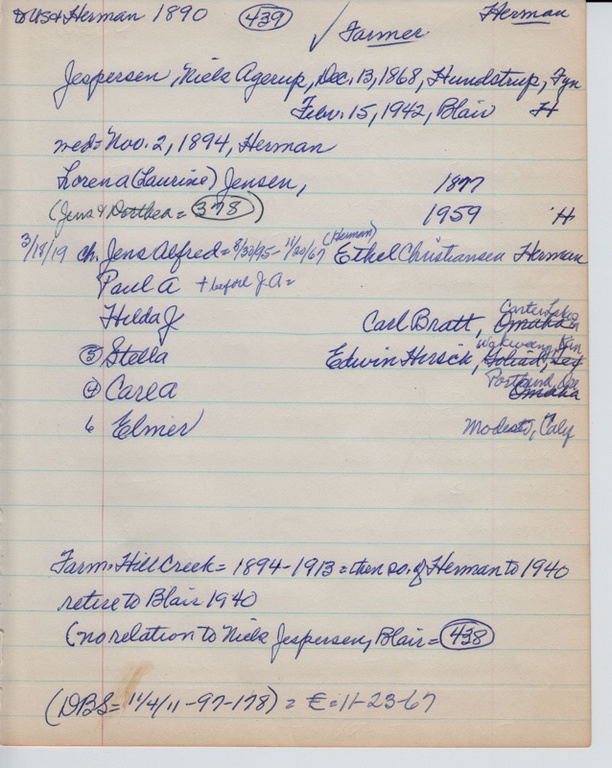 to USA Herman 1890 439 ✓ Farmer Herman
Jespersen, Niels Agerup, Dec. 13, 1868, Hundstrup, Fyn
Febr. 15, 1942, Blair H
med = Nov. 2, 1894, Herman
Lorena (Laurine) Jensen, 1877
(Jens & Dorthea = 378) 1959 H
3/18/19 ch. Jens Alfred = 8/30/95 - 11/20/67 (Herman) Ethel Christiansen Herman
Paul A + before J.A =
Hilda J Carl Bratt, Omaha Carter Lake
③ Stella Edwin Hersick, Goliad, Tex
④ Carl A Portland, Ore Omaha
6 Elmer Modesto, Calif
Farm: Hill Creek = 1894-1913 = then so. of Herman to 1940
retire to Blair 1940
(no relation to Niels Jespersen, Blair = 438
(DBS = 11/4/11 - 97-178) = E = 11-23-67